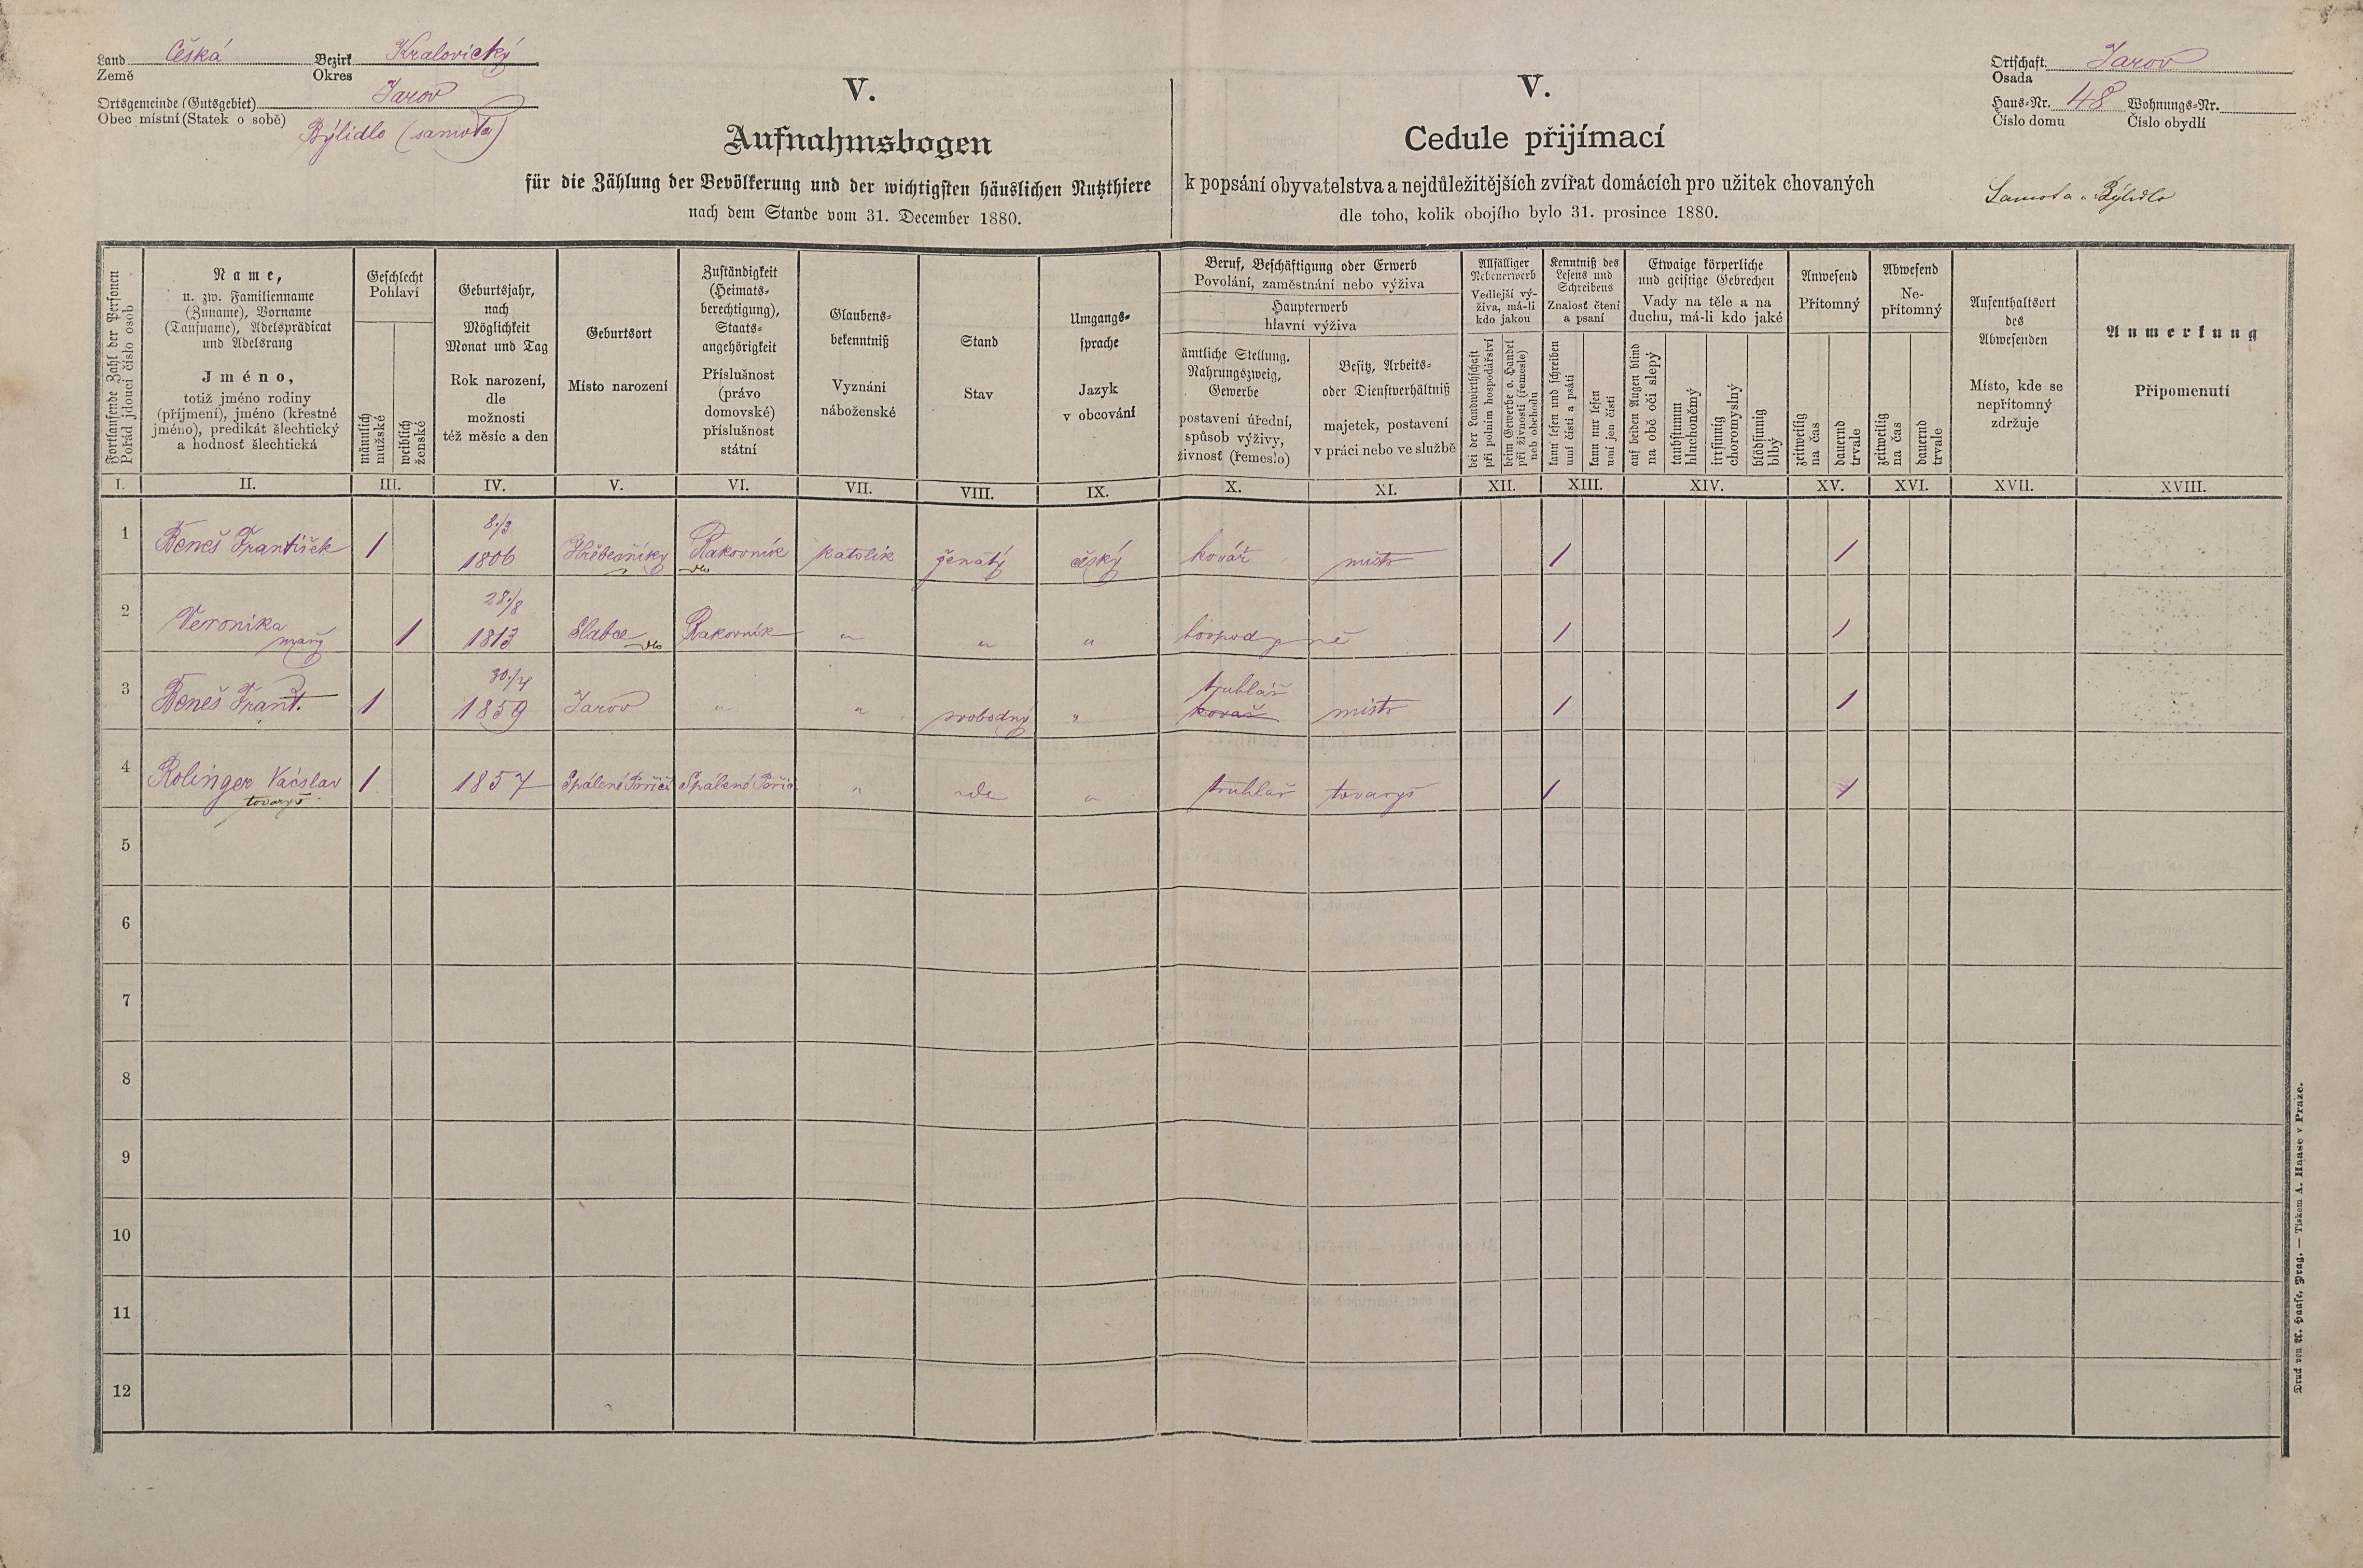 Land Česká Bezirk Kralovický
Země Okres
Ortsgemeinde (Gutsgebiet) Jarov
Obec místní (Statek o sobě) Býlidlo (samota)
V.
Aufnahmsbogen
für die Zählung der Bevölkerung und der wichtigsten häuslichen Nutzthiere
nach dem Stande vom 31. December 1880.
V.
Cedule přijímací
k popsání obyvatelstva a nejdůležitějších zvířat domácích pro užitek chovaných
dle toho, kolik obojího bylo 31. prosince 1880.
Ortschaft Jarov
Osada
Haus-Nr. 48 Wohnungs-Nr.
Číslo domu Číslo obydlí
Samota Býlidlo
Fortlaufende Zahl der Personen
Pořád jdoucí číslo osob
Name,
u. zw. Familienname
(Zuname), Vorname
(Taufname), Adelsprädicat
und Adelsrang
Jméno,
totiž jméno rodiny
(příjmení), jméno (křestné
jméno), predikát šlechtický
a hodnosť šlechtická
Geschlecht
Pohlaví
männlich
mužské
weiblich
ženské
Geburtsjahr,
nach
Möglichkeit
Monat und Tag
Rok narození,
dle
možnosti
též měsíc a den
Geburtsort
Místo narození
Zuständigkeit
(Heimats-
berechtigung),
Staats-
angehörigkeit
Příslušnost
(právo
domovské)
příslušnost
státní
Glaubens-
bekenntniß
Vyznání
náboženské
Stand
Stav
Umgangs-
sprache
Jazyk
v obcování
Beruf, Beschäftigung oder Erwerb
Povolání, zaměstnání nebo výživa
Haupterwerb
hlavní výživa
ämtliche Stellung,
Nahrungszweig,
Gewerbe
postavení úřední,
spůsob výživy,
živnosť (řemeslo)
Besitz, Arbeits-
oder Dienstverhältniß
majetek, postavení
v práci nebo ve službě
Allfälliger
Nebenerwerb
Vedlejší vý-
živa, má-li
kdo jakou
bei der Landwirthschaft
při polním hospodářství
beim Gewerbe o. Handel
při živnosti (řemesle)
neb obchodu
Kenntniß des
Lesens und
Schreibens
Znalosť čtení
a psaní
kann lesen und schreiben
umí čísti a psáti
kann nur lesen
umí jen čísti
Etwaige körperliche
und geistige Gebrechen
Vady na těle a na
duchu, má-li kdo jaké
auf beiden Augen blind
na obě oči slepý
taubstumm
hluchoněmý
irrsinnig
choromyslný
blödsinnig
blbý
Anwesend
Přítomný
zeitweilig
na čas
dauernd
trvale
Abwesend
Ne-
přítomný
zeitweilig
na čas
dauernd
trvale
Aufenthaltsort
des
Abwesenden
Místo, kde se
nepřítomný
zdržuje
Anmerkung
Připomenutí
I. II. III. IV. V. VI. VII. VIII. IX. X. XI. XII. XIII. XIV. XV. XVI. XVII. XVIII.
1 Beneš František 1 8./3 1806 Hřebečníky Rakovník katolík ženatý český kovář mistr 1 1
2 Veronika 1 28./8 1813 Slabce Rakovník " " " 1 1
3 Beneš Frant. 1 30./4 1859 Jarov " " svobodný " truhlář kovář mistr 1 1
4 Rolinger Václav 1 1857 Spálené Poříčí Spálené Poříčí " " truhlář tovaryš 1 1
tovaryš
5
6
7
8
9
10
11
12
Druck von A. Haase, Prag. — Tiskem A. Haase v Praze.